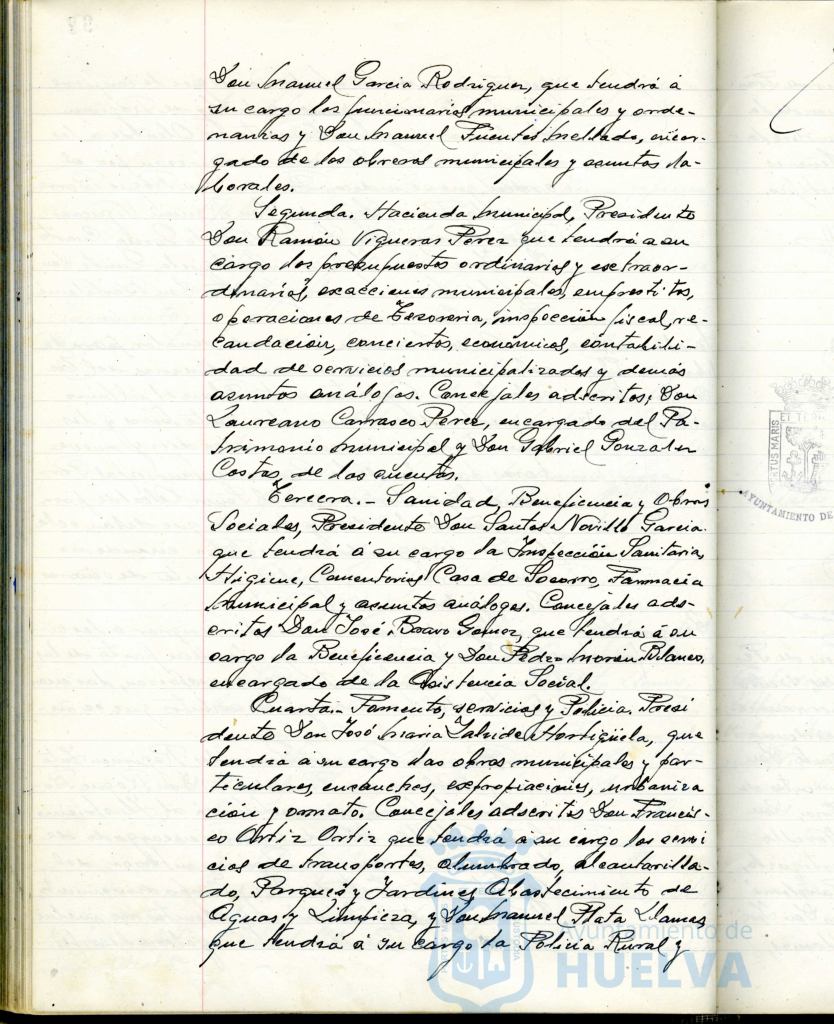 Don Manuel Garcia Rodriguez, que tendrá á
su cargo los funcionarios municipales y orde-
nanzas y Don Manuel Fuentes Mellado, encar-
gado de los obreros municipales y asuntos la-
borales.
Segunda. Hacienda Municipal, Presidente
Don Ramón Vigueras Perez que tendrá a su
cargo los presupuestos ordinarios y extraor-
dinarios, exacciones municipales, emprestitos,
operaciones de Tesoreria, inspección fiscal, re-
caudación, conciertos, económicos, contabili-
dad de servicios municipalizados y demás
asuntos análogos. Concejales adscritos: Don
Laureano Carrasco Perez, encargado del Pa-
trimonio Municipal y Don Gabriel Gonzalez
Costas, de las cuentas.
Tercera.- Sanidad, Beneficencia y Obras
Sociales, Presidente Don Santos Novillo Garcia.
que tendrá á su cargo la Inspección Sanitaria,
Higiene, Cementerios, Casa de Socorro, Farmacia
Municipal y asuntos análogos. Concejales ads-
critos Don José Bravo Gomez, que tendrá á su
cargo la Beneficencia y Don Pedro Morón Blanco,
encargado de la Asistencia Social.
Cuarta.- Fomento, servicios y Policia. Presi
dente Don José Maria Hortigüela, que
tendrá á su cargo las obras municipales y par-
ticulares, ensanches, expropiaciones, urbaniza
ción y ornato. Concejales adscritos Don Francis-
co Ortiz Ortiz que tendrá á su cargo los servi
cios de transportes, alumbrado, alcantarilla-
do, Parques y Jardines, Abastecimiento de
Aguas y Limpieza, y Don Manuel Plata Llamas
que tendrá á su cargo la Policia Rural y
Ayuntamiento de
HUELVA
AYUNTAMIENTO DE